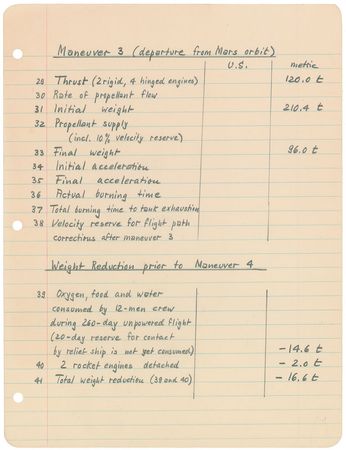 Maneuver 3 (departure from Mars orbit)
U.S. metric
29 Thrust (2 rigid, 4 hinged engines) 120.0 t
30 Rate of propellant flow
31 Initial weight 210.4 t
32 Propellant supply
(incl. 10% velocity reserve)
33 Final weight 96.0 t
34 Initial acceleration
35 Final acceleration
36 Actual burning time
37 Total burning time to tank exhaustion
38 Velocity reserve for flight path
corrections after maneuver 3
Weight Reduction prior to Maneuver 4
39 Oxygen, food and water
consumed by 12-men crew
during 260-day unpowered flight
(20-day reserve for contact
by relief ship is not yet consumed) -14.6 t
40 2 rocket engines detached -2.0 t
41 Total weight reduction (39 and 40) -16.6 t